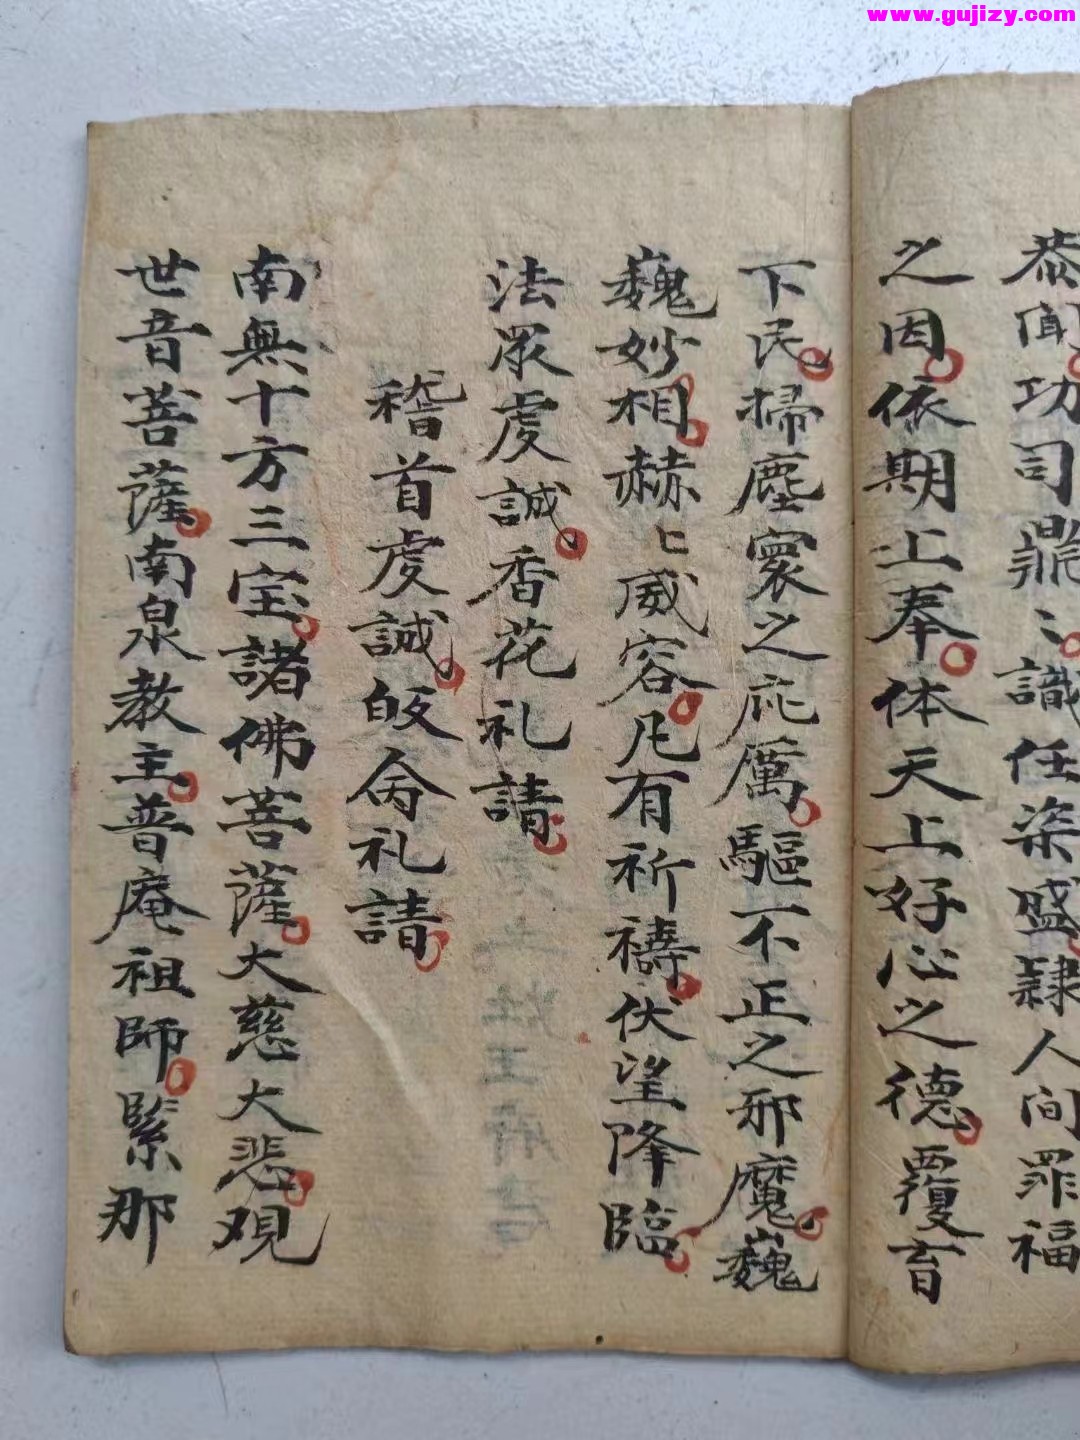 www.gujizy.com
恭闻功司鼎〻識任染盛隸人间罪福
之因依期上奉体天上好心之德覆育
下民掃塵寰之庇厲驅不正之邪魔巍
巍妙相赫〻威容凡有祈禱伏望降臨
法眾虔誠香花礼請
稽首虔誠皈命礼請
南無十方三宝諸佛菩薩大慈大悲观
世音菩薩南泉教主普庵祖師緊那